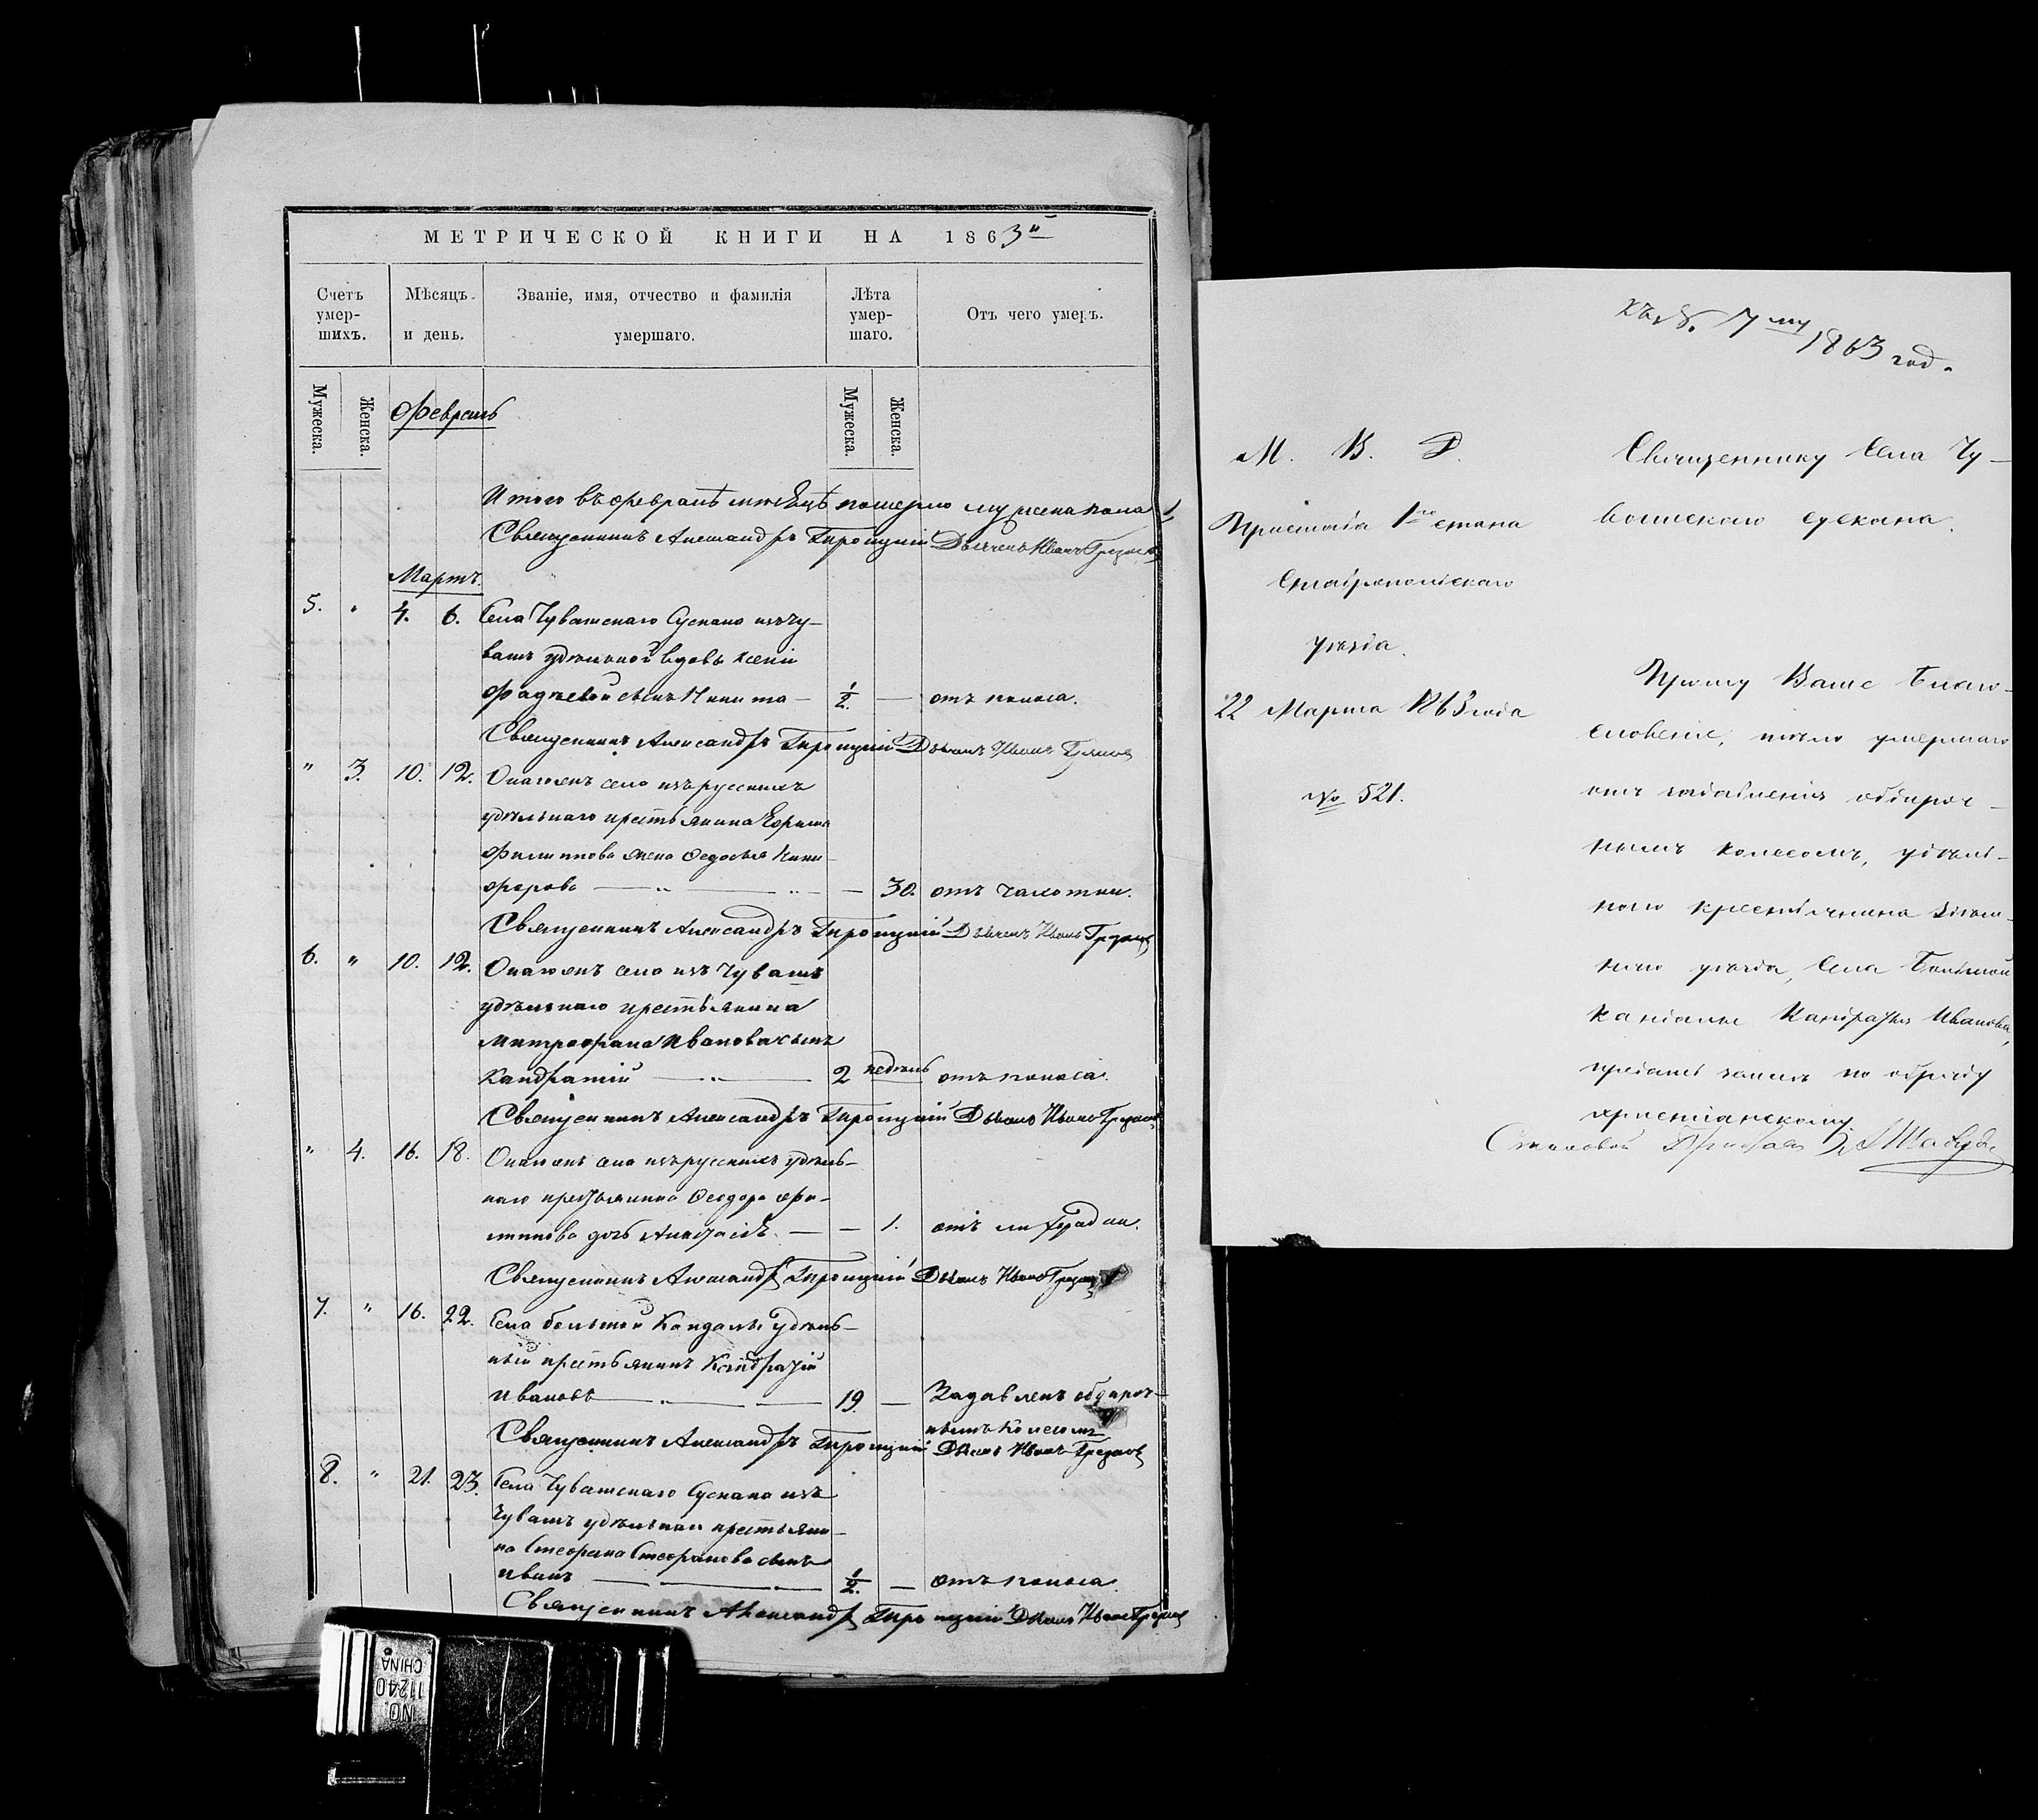 МЕТРИЧЕСКОЙ КНИГИ НА 1863й
Счетъ умер-шихъ.
Мѣсяцъ и день.
Званіе, имя, отчество и фамилія умершаго.
Лѣта умер-шаго.
Отъ чего умеръ.
Мужеска.
Женска.
Мужеска.
Женска.
Февраль
Итого въ февралѣ мѣсяцѣ померло мужеска пола 1
Священникъ Александръ Дьяконъ Иванъ
Мартъ.
5. " 4. 6. Села Чувашскаго Сускана изъ чу-
вашъ удѣльной вдовы Ксеніи
Фадѣевой сынъ Никита — 1/2. — отъ поноса.
Священникъ Александръ Дьяконъ Иванъ
" 3. 10. 12. Онагожъ села изъ русскихъ
удѣльнаго крестьянина Ефима
Филиппова жена Федосья Ники-
форова — " — " — — 30. отъ чахотки.
Священникъ Александръ Дьяконъ Иванъ
6. " 10. 12. Онагожъ села изъ Чувашъ
удѣльнаго крестьянина
Митрофана Иванова сынъ
Кандратій — " — 2 недѣль отъ поноса.
Священникъ Александръ Дьяконъ Иванъ
" 4. 16. 18. Онагожъ села изъ русскихъ удѣль-
наго крестьянина Феодора Фи-
липпова дочь — — 1. отъ лихорадки.
Священникъ Александръ Дьяконъ Иванъ
7. " 16. 22. Села большой Кандалы удѣль-
ный крестьянинъ Кандратій
Ивановъ — " — 19. — Задавленъ обдироч-
нымъ колесомъ
Священникъ Александръ Дьяконъ Иванъ
8. " 21. 23. Села Чувашскаго Сускана изъ
Чувашъ удѣльнаго крестьяни-
на Стефана Стефанова сынъ
Иванъ — 1/2. — отъ поноса.
Священникъ Александръ Дьяконъ Иванъ
къ №. 7му
1863 год.
М. В. Д.
Пристава 1го стана
Ставропольскаго
уѣзда.
22 Марта 1863 года
№ 521.
Священнику Села Чу-
вашскаго Сускана.
Прошу Ваше Благо-
словеніе, тѣло умершаго
отъ задавленія обдироч-
нымъ колесомъ, удѣль-
наго крестьянина
уѣзда, Села Большой
Кандалы Кандратія Иванова,
предать землѣ по обряду
христіанскому.
Становой Приставъ